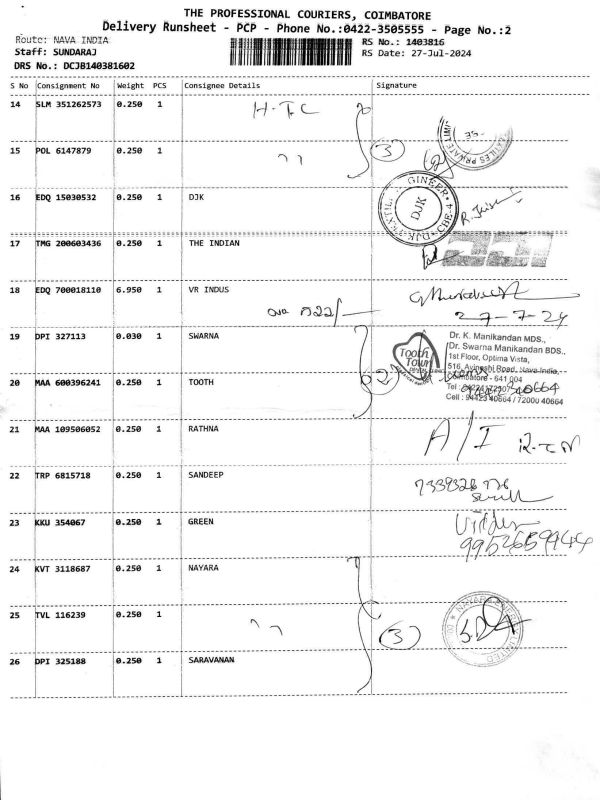 THE PROFESSIONAL COURIERS, COIMBATORE
Delivery Runsheet - PCP - Phone No.:0422-3505555 - Page No.:2
Route: NAVA INDIA
RS No.: 1403816
Staff: SUNDARAJ
RS Date: 27-Jul-2024
DRS No.: DCJB140381602
S No Consignment No Weight PCS Consignee Details Signature
14 SLM 351262573 0.250 1 H.T.C
15 POL 6147879 0.250 1 " (3)
PRIVATE
16 EDQ 15030532 0.250 1 DJK
DJK
17 TMG 200603436 0.250 1 THE INDIAN
18 EDQ 700018110 6.950 1 VR INDUS
27-7-24
19 DPI 327113 0.030 1 SWARNA
Tooth Town
Dr. K. Manikandan MDS.,
Dr. Swarna Manikandan BDS.,
1st Floor, Optima Vista,
516, Avinashi Road, Nava India,
Coimbatore - 641 004
Tel :
Cell : 94423 40664 / 72000 40664
20 MAA 600396241 0.250 1 TOOTH (2)
21 MAA 109506052 0.250 1 RATHNA
22 TRP 6815718 0.250 1 SANDEEP
23 KKU 354067 0.250 1 GREEN
24 KVT 3118687 0.250 1 NAYARA
25 TVL 116239 0.250 1 " (3)
26 DPI 325188 0.250 1 SARAVANAN